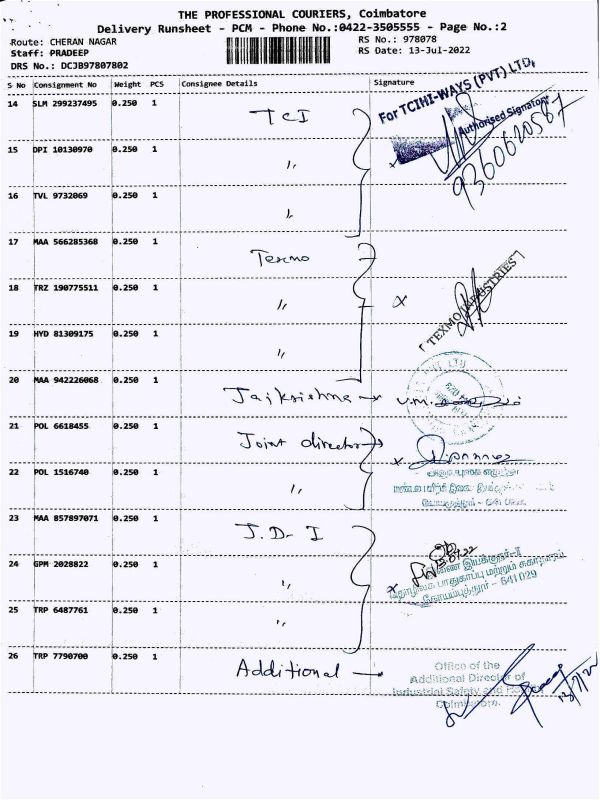 THE PROFESSIONAL COURIERS, Coimbatore
Delivery Runsheet - PCM - Phone No.:0422-3505555 - Page No.:2
Route: CHERAN NAGAR
RS No.: 978078
Staff: PRADEEP
RS Date: 13-Jul-2022
DRS No.: DCJB97807802
S No Consignment No Weight PCS Consignee Details Signature
14 SLM 299237495 0.250 1 TCI
For TCIHI-WAYS (PVT) LTD,
Authorised Signatory
9360620567
15 DPI 10130970 0.250 1 〃 x
16 TVL 9732069 0.250 1 〃
17 MAA 566285368 0.250 1 Texmo
18 TRZ 190775511 0.250 1 〃 x
TEXMO INDUSTRIES
19 HYD 81309175 0.250 1 〃
20 MAA 942226068 0.250 1 Jaikrishna
21 POL 6618455 0.250 1 Joint director x
22 POL 1516740 0.250 1 〃
23 MAA 857897071 0.250 1 J.D- I
24 GPM 2028822 0.250 1 〃 x
641029
25 TRP 6487761 0.250 1 〃
26 TRP 7790700 0.250 1 Additional
Office of the
Additional Director of
Industrial Safety and
13/7/22